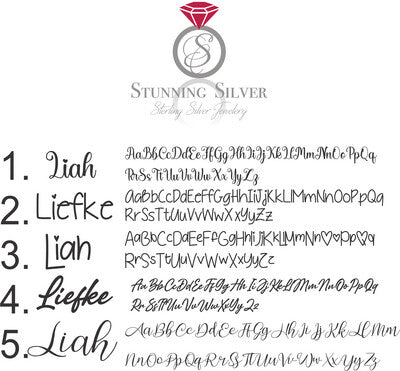 S
STUNNING SILVER
Sterling Silver Jewelery
1. Liah
AaBbCcDdEeFfGgHhIiJjKkLlMmNnOoPpQq
RrSsTtUuVvWwXxYyZz
2. Liefke
AaBbCcDdEeFfGgHhIiJjKkLlMmNnOoPpQq
RrSsTtUuVvWwXxYyZz
3. Liah
AaBbCcDdEeFfGgHhIiJjKkLlMmNn♡♡PpQq
RrSsTtUuVvWwXxYyZz
4. Liefke
AaBbCcDdEeFfGgHhIiJjKkLlMmNnOoPpQq
RrSsTtUuVvWwXxYyZz
5. Liah
AaBbCcDdEeFfGgHhIiJjKkLlMm
NnOoPpQqRrSsTtUuVvWwXxYyZz